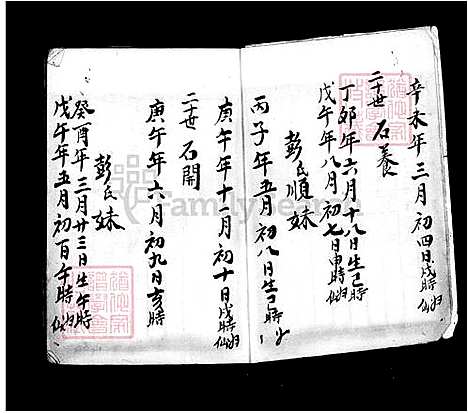 辛未年三月初四日戌時歸仙
二十世 石養
丁卯年六月十八日生巳時
戊午年八月初七日申時歸仙
彭氏順妹
丙子年五月初八日生巳時
庚午年十一月初十日戌時歸仙
二十世 石開
庚午年六月初九日亥時
彭氏妹
癸酉年三月廿三日生午時
戊午年五月初百午時歸仙
FamilySearch